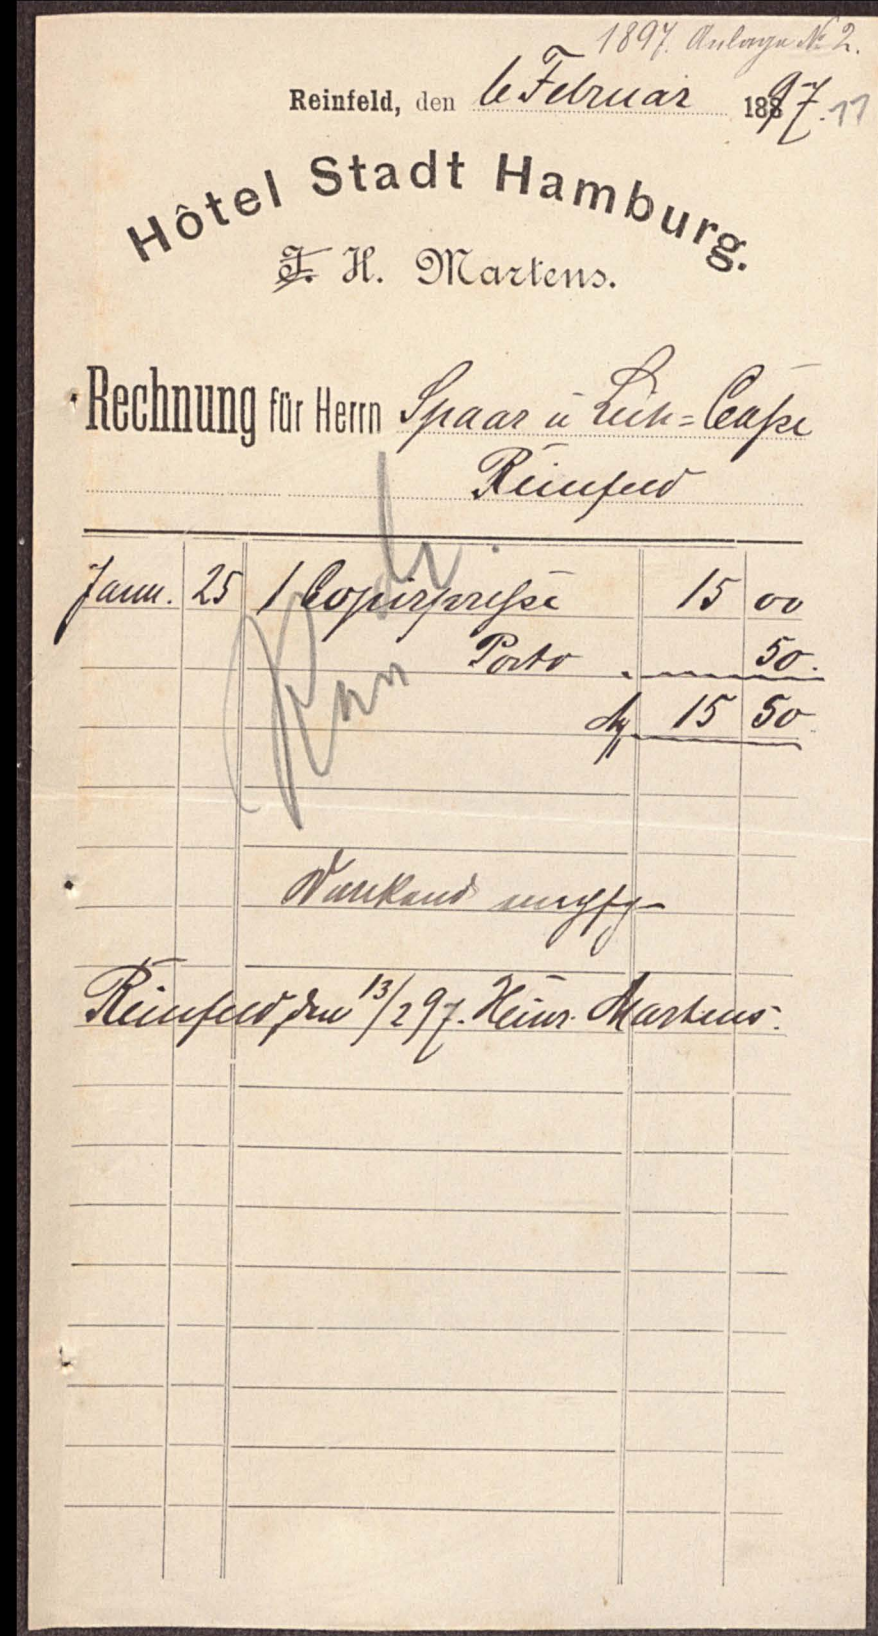 1897. Anlage № 2.
Reinfeld, den 6 Februar 1897. 11
Hôtel Stadt Hamburg.
J. H. Martens.
Rechnung für Herrn Spaar u Leih=Casse
Reinfeld
Janu. 25 1 Copirpresse 15 00
Porto 50.
M 15 50
Dankend
Reinfeld, den 13/2 97. Heinr. Martens.